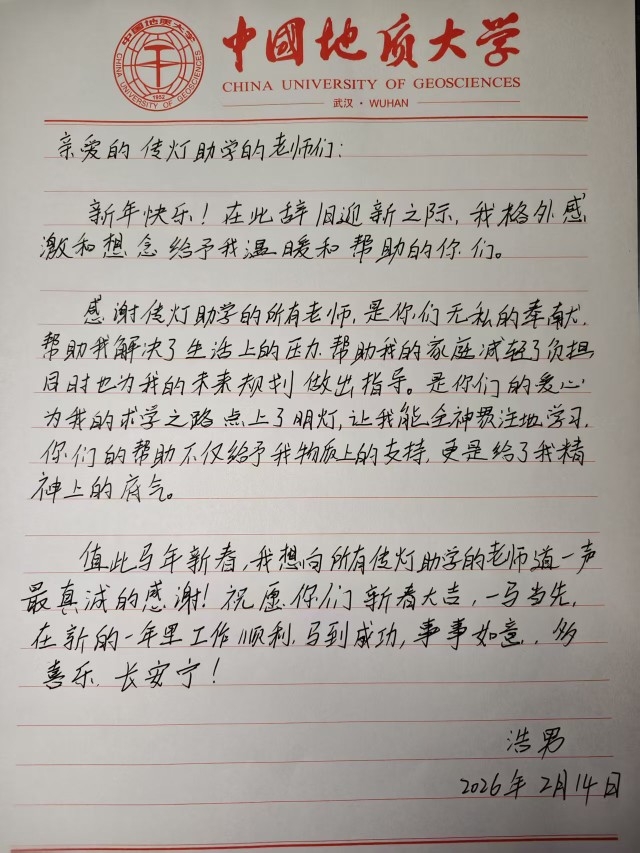 中国地质大学
CHINA UNIVERSITY OF GEOSCIENCES
1952
中国地质大学
CHINA UNIVERSITY OF GEOSCIENCES
武汉·WUHAN
亲爱的传灯助学的老师们:
新年快乐!在此辞旧迎新之际,我格外感
激和想念给予我温暖和帮助的你们。
感谢传灯助学的所有老师,是你们无私的奉献,
帮助我解决了生活上的压力,帮助我的家庭减轻了负担
同时也为我的未来规划做出指导。是你们的爱心
为我的求学之路点上了明灯,让我能全神贯注地学习,
你们的帮助不仅给予我物质上的支持,更是给了我精
神上的底气。
值此马年新春,我想向所有传灯助学的老师道一声
最真诚的感谢!祝愿你们新春大吉,一马当先,
在新的一年里工作顺利,马到成功,事事如意,多
喜乐,长安宁!
浩男
2026年2月14日